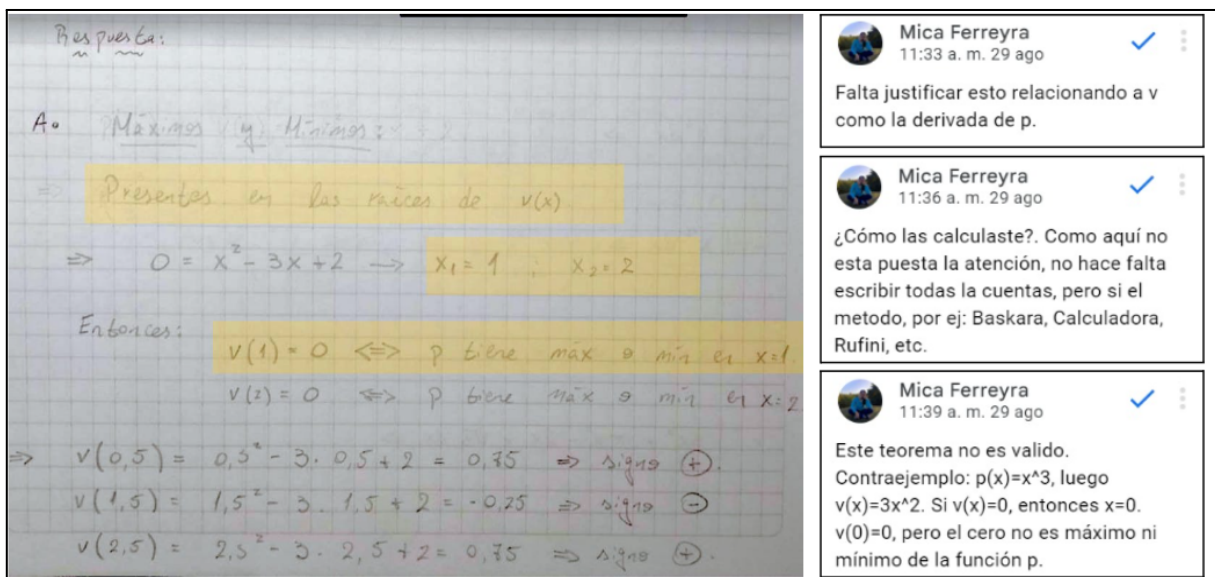 Respuesta:
A. Máximos (y) Mínimos:
⇒ Presentes en las raíces de v(x)
⇒ 0 = x² - 3x + 2 → x₁ = 1 ; x₂ = 2
Entonces:
v(1) = 0 <=> p tiene máx o mín en x=1.
v(2) = 0 <=> p tiene máx o mín en x=2
⇒ v(0,5) = 0,5² - 3. 0,5 + 2 = 0,75 ⇒ signo (+).
v(1,5) = 1,5² - 3. 1,5 + 2 = -0,25 ⇒ signo (-)
v(2,5) = 2,5² - 3. 2,5 + 2 = 0,75 ⇒ signo (+).
Mica Ferreyra
11:33 a. m. 29 ago
Falta justificar esto relacionando a v
como la derivada de p.
Mica Ferreyra
11:36 a. m. 29 ago
¿Cómo las calculaste?. Como aquí no
esta puesta la atención, no hace falta
escribir todas la cuentas, pero si el
metodo, por ej: Baskara, Calculadora,
Rufini, etc.
Mica Ferreyra
11:39 a. m. 29 ago
Este teorema no es valido.
Contraejemplo: p(x)=x^3, luego
v(x)=3x^2. Si v(x)=0, entonces x=0.
v(0)=0, pero el cero no es máximo ni
mínimo de la función p.